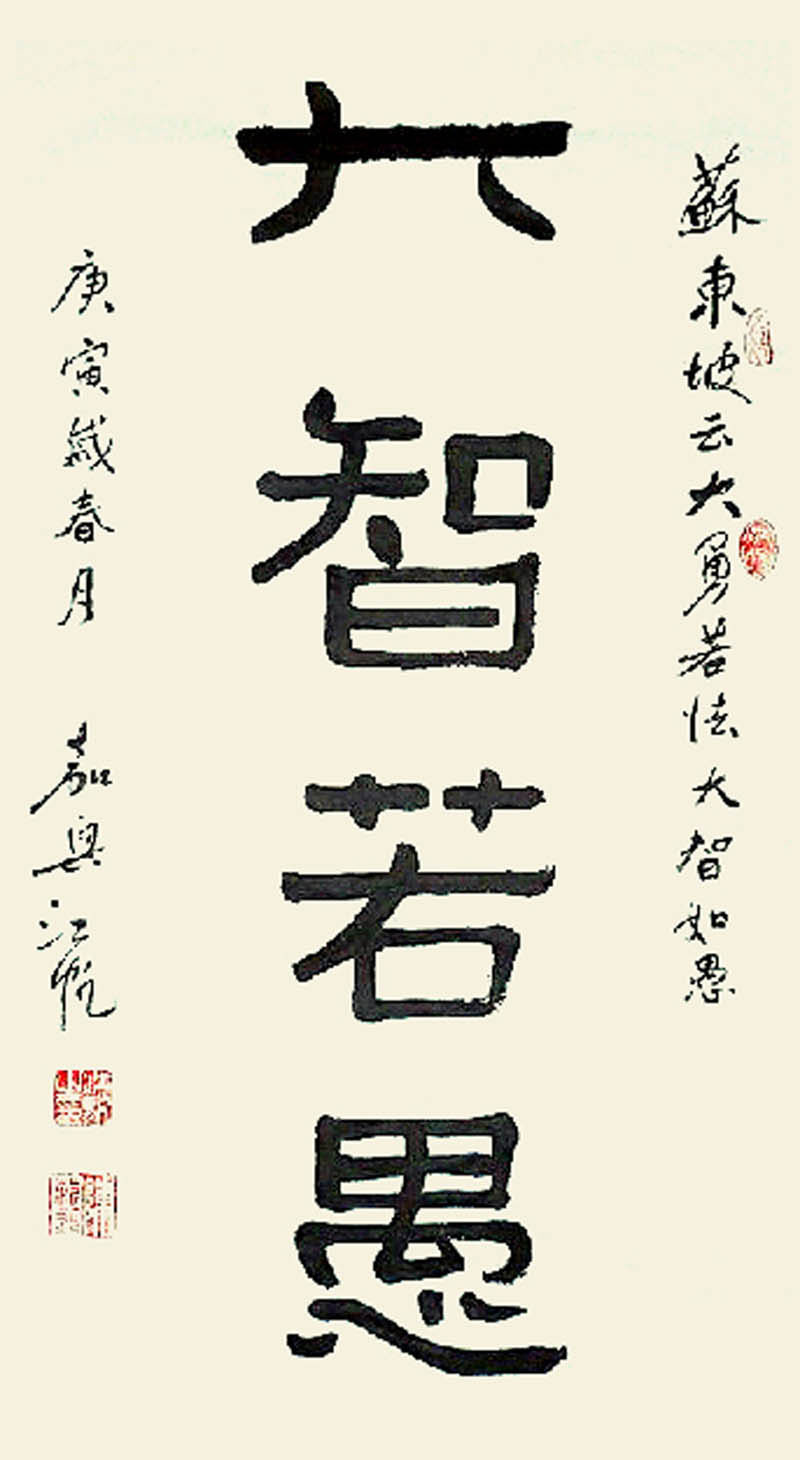 蘇東坡云大勇若怯大智如愚
大智若愚
庚寅歲春月 嘉興江